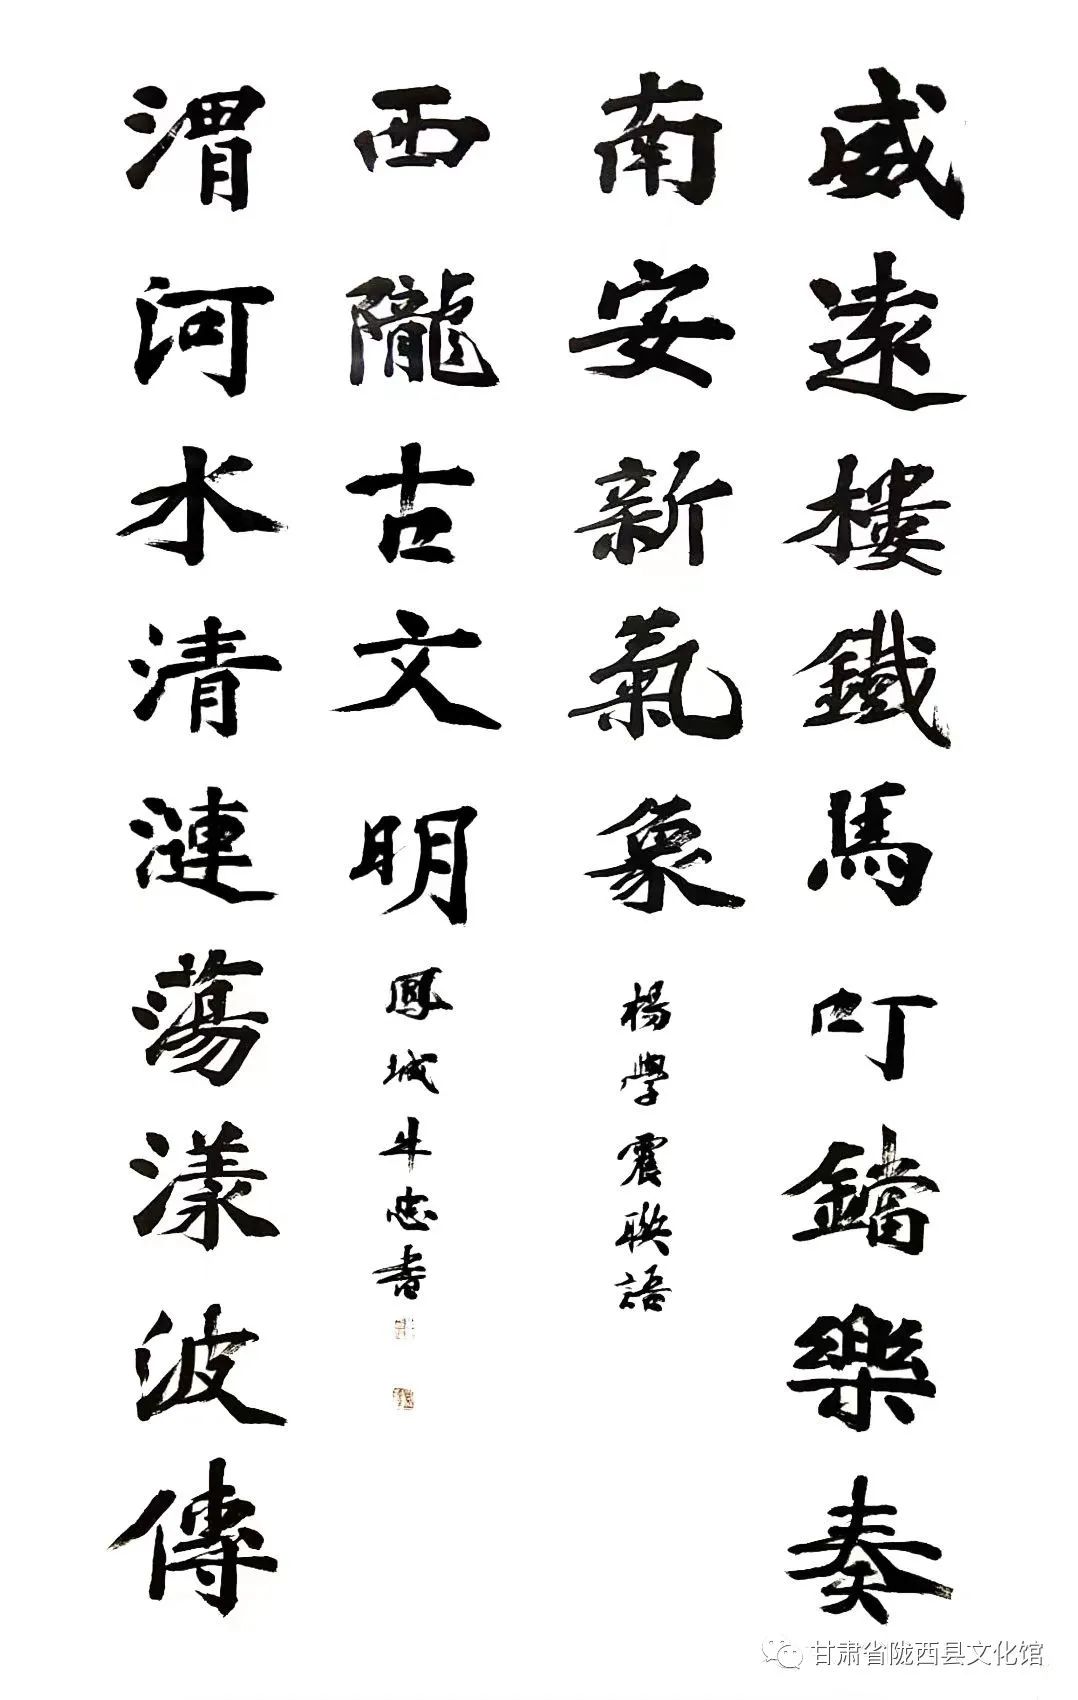 威遠樓鐵馬叮鐺樂奏
南安新氣象
楊學震聯語
渭河水清漣蕩漾波傳
西隴古文明
鳳城牛忠書
甘肃省陇西县文化馆